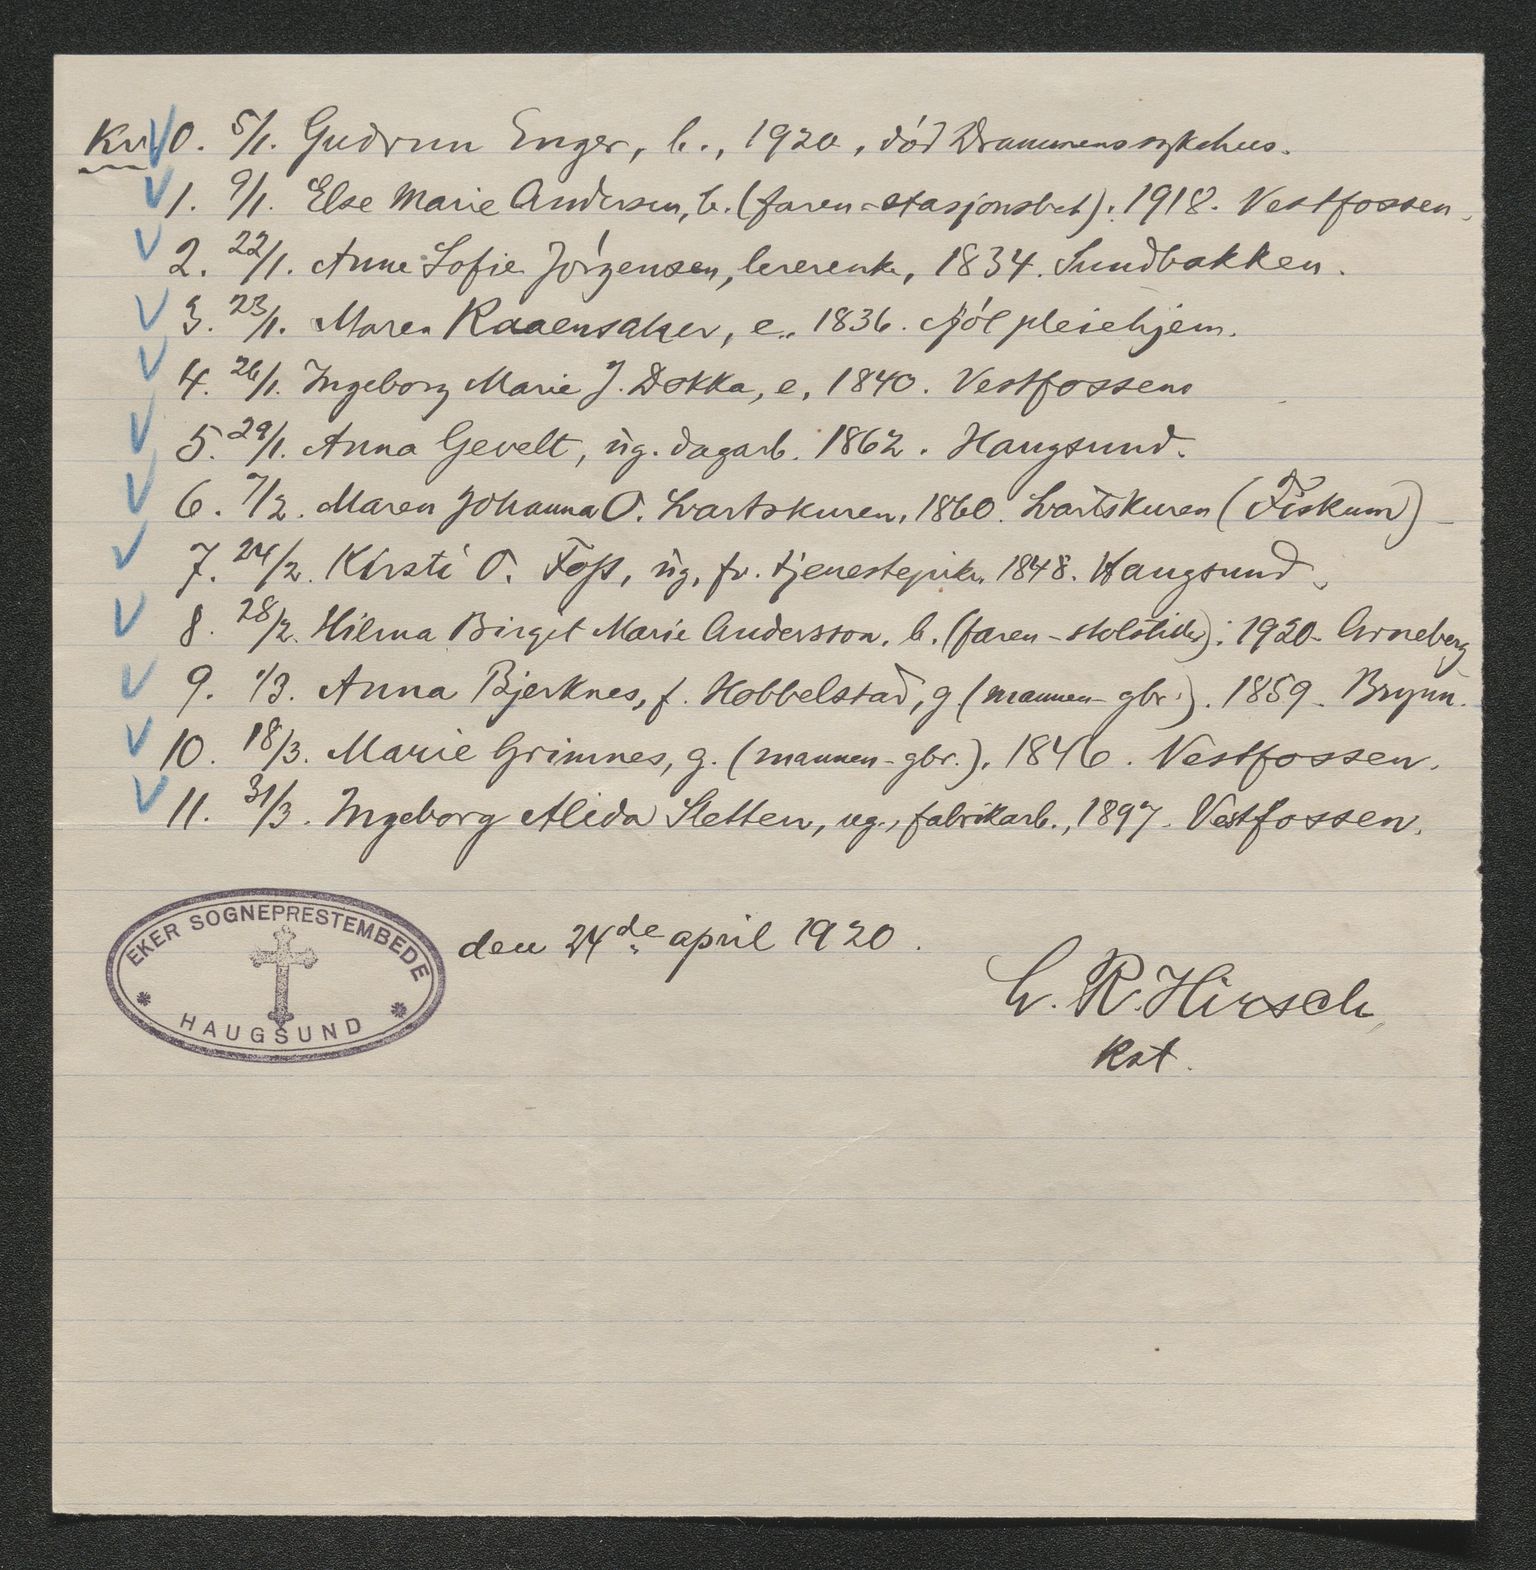 Kv. 0. 5/1. Gudrun Enger, b., 1920, död Drammens sykehus.
1. 9/1. Else Marie Andersen, b. (faren = stasjonsbet). 1918. Vestfossen.
2. 22/1. Anne Sofie Jörgensen, lererenke, 1834. Sundbakken.
3. 23/1. Maren Raaensaker, e., 1836. pleiehjem.
4. 26/1. Ingeborg Marie J. Dokka, e, 1840. Vestfossens
5. 29/1. Anna Gevelt, ug. dagarb. 1862. Haugsund.
6. 7/2. Maren Johanna O. Svartskuren, 1860. Svartskuren (Fiskum)
7. 24/2. Kirsti O. Foss, ug, fv. tjenestepike, 1848. Haugsund.
8. 28/2. Hilma Birgit Marie Andersson. b. (faren - ): 1920. Arneberg
9. 1/3. Anna Bjerknes, f. Hobbelstad, g (mannen - gbr.). 1859. Brynn.
10. 18/3. Marie Grimnes, g. (mannen - gbr.), 1846. Vestfossen.
11. 31/3. Ingeborg Alida Sletten, ug., fabrikarb., 1897. Vestfossen.
EKER SOGNEPRESTEMBEDE
HAUGSUND
den 24de april 1920.
R. Hirsch
Kst.